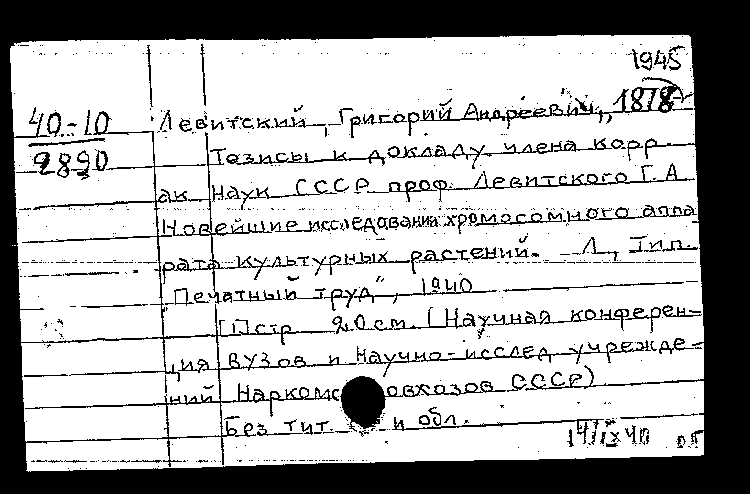 1945
40-10 Левитский, Григорий Андреевич, 1878
2890 Тезисы к докладу члена корр.
ак наук СССР проф. Левитского Г. А
Новейшие исследования хромосомного аппа
рата культурных растений. Л, Тип.
"Печатный труд", 1940
[1] стр 20 см. (Научная конферен-
ция ВУЗов и Научно-исслед учрежде-
ний Наркомс овхозов СССР)
Без тит. и обл.
14/IX 40